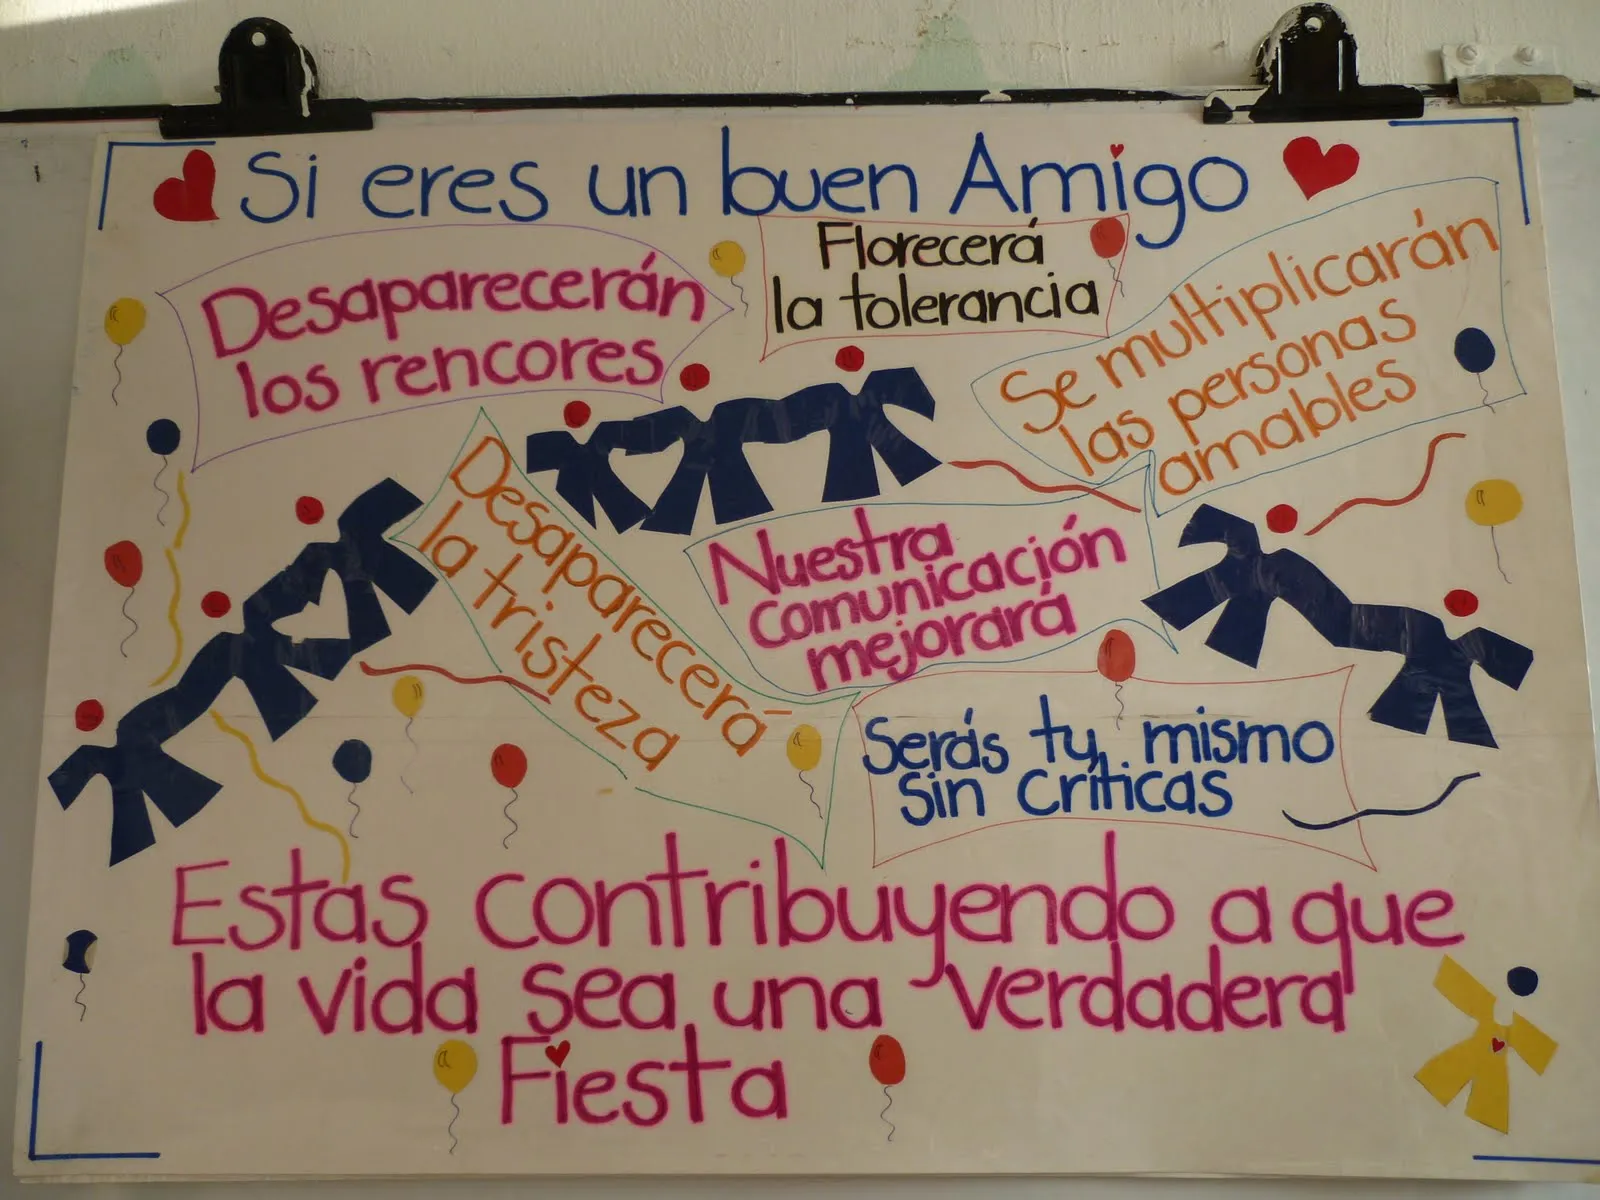 Si eres un buen Amigo
Desaparecerán
los rencores
Florecerá
la tolerancia
Se multiplicarán
las personas
amables
Desaparecerá
la tristeza
Nuestra
comunicación
mejorará
Serás tu mismo
sin críticas
Estas contribuyendo a que
la vida sea una verdadera
Fiesta